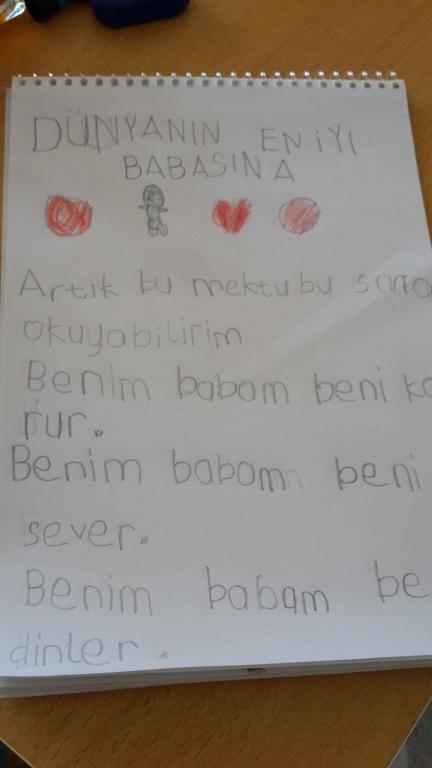 DÜNYANIN EN İYİ
BABASINA
Artık bu mektubu sana
okuyobilirim
Benim babam beni ko
rur.
Benim babam beni
sever.
Benim babam be
dinler.